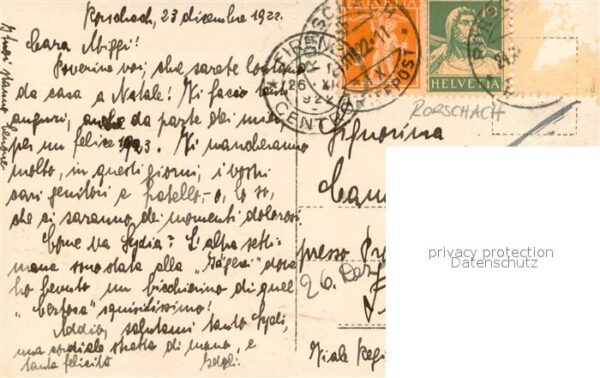 Rorschach, 23 dicembre 1922.
Cara Miggi!
Poverine voi, che sarete lontane
da casa a Natale! Vi faccio tanti
auguri, anche da parte dei miei,
per un felice 1923. Vi mancheranno
molto, in questi giorni, i vostri
cari genitori e fratello, e, lo so,
che ci saranno dei momenti dolorosi
Come va Lydia? L'altra setti-
mana sono stata alla dove
ho bevuto un bicchierino di quel
"Certosa" squisitissimo!
Addio, salutami tanto Lydi,
una cordiale stretta di mano, e
tanta felicità
I tuoi stanno bene
HELVETIA
RORSCHACH
CENTRO
Signorina
presso
26. Dez
Viale Regi
privacy protection
Datenschutz